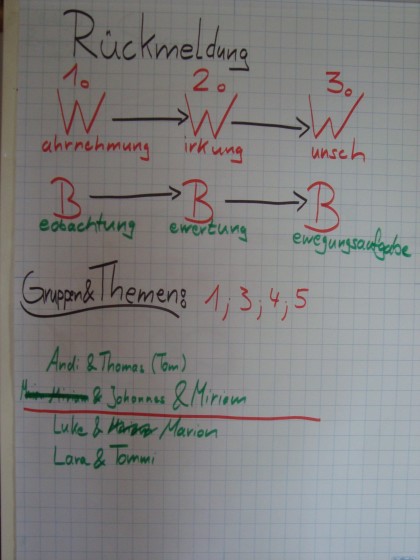 Rückmeldung
1. 2. 3.
Wahrnehmung → Wirkung → Wunsch
Beobachtung → Bewertung → Bewegungsaufgabe
Gruppen & Themen: 1; 3; 4; 5
Andi & Thomas (Tom)
& Johannes & Miriam
Luke & Marion
Lara & Tommi